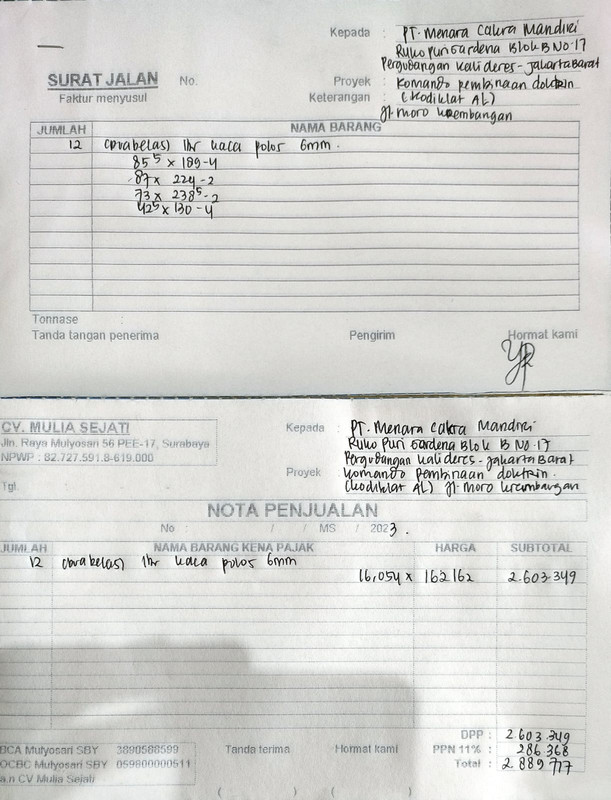 Kepada : PT. Menara Cakra Mandiri
Ruko Puri Gardena Blok B No. 17
Pergudangan Kalideres - Jakarta Barat
SURAT JALAN No.
Faktur menyusul
Proyek : Komando pembinaan doktrin
Keterangan : (Kodiklat AL)
jl. moro krembangan
JUMLAH NAMA BARANG
12 (Duabelas) lbr kaca polos 6mm.
85⁵ x 189 - 4
87 x 224 - 2
73 x 238⁵ - 2
42⁵ x 130 - 4
Tonnase :
Tanda tangan penerima Pengirim Hormat kami
CV. MULIA SEJATI
Jln. Raya Mulyosari 56 PEE-17, Surabaya
NPWP : 82.727.591.8-619.000
Tgl.
Kepada : PT. Menara Cakra Mandiri
Ruko Puri Gardena Blok B No. 17
Pergudangan Kalideres - Jakarta Barat
Proyek Komando Pembinaan doktrin.
(Kodiklat AL) jl. moro krembangan
NOTA PENJUALAN
No : / / MS / 2023.
JUMLAH NAMA BARANG KENA PAJAK HARGA SUBTOTAL
12 (Duabelas) lbr kaca polos 6mm
16,054 x 162.162 2.603.349
DPP : 2.603.349
PPN 11% : 286.368
Total : 2.889.717
BCA Mulyosari SBY 3890588599 Tanda terima Hormat kami
OCBC Mulyosari SBY 059800000511
a.n CV Mulia Sejati
( ) ( )